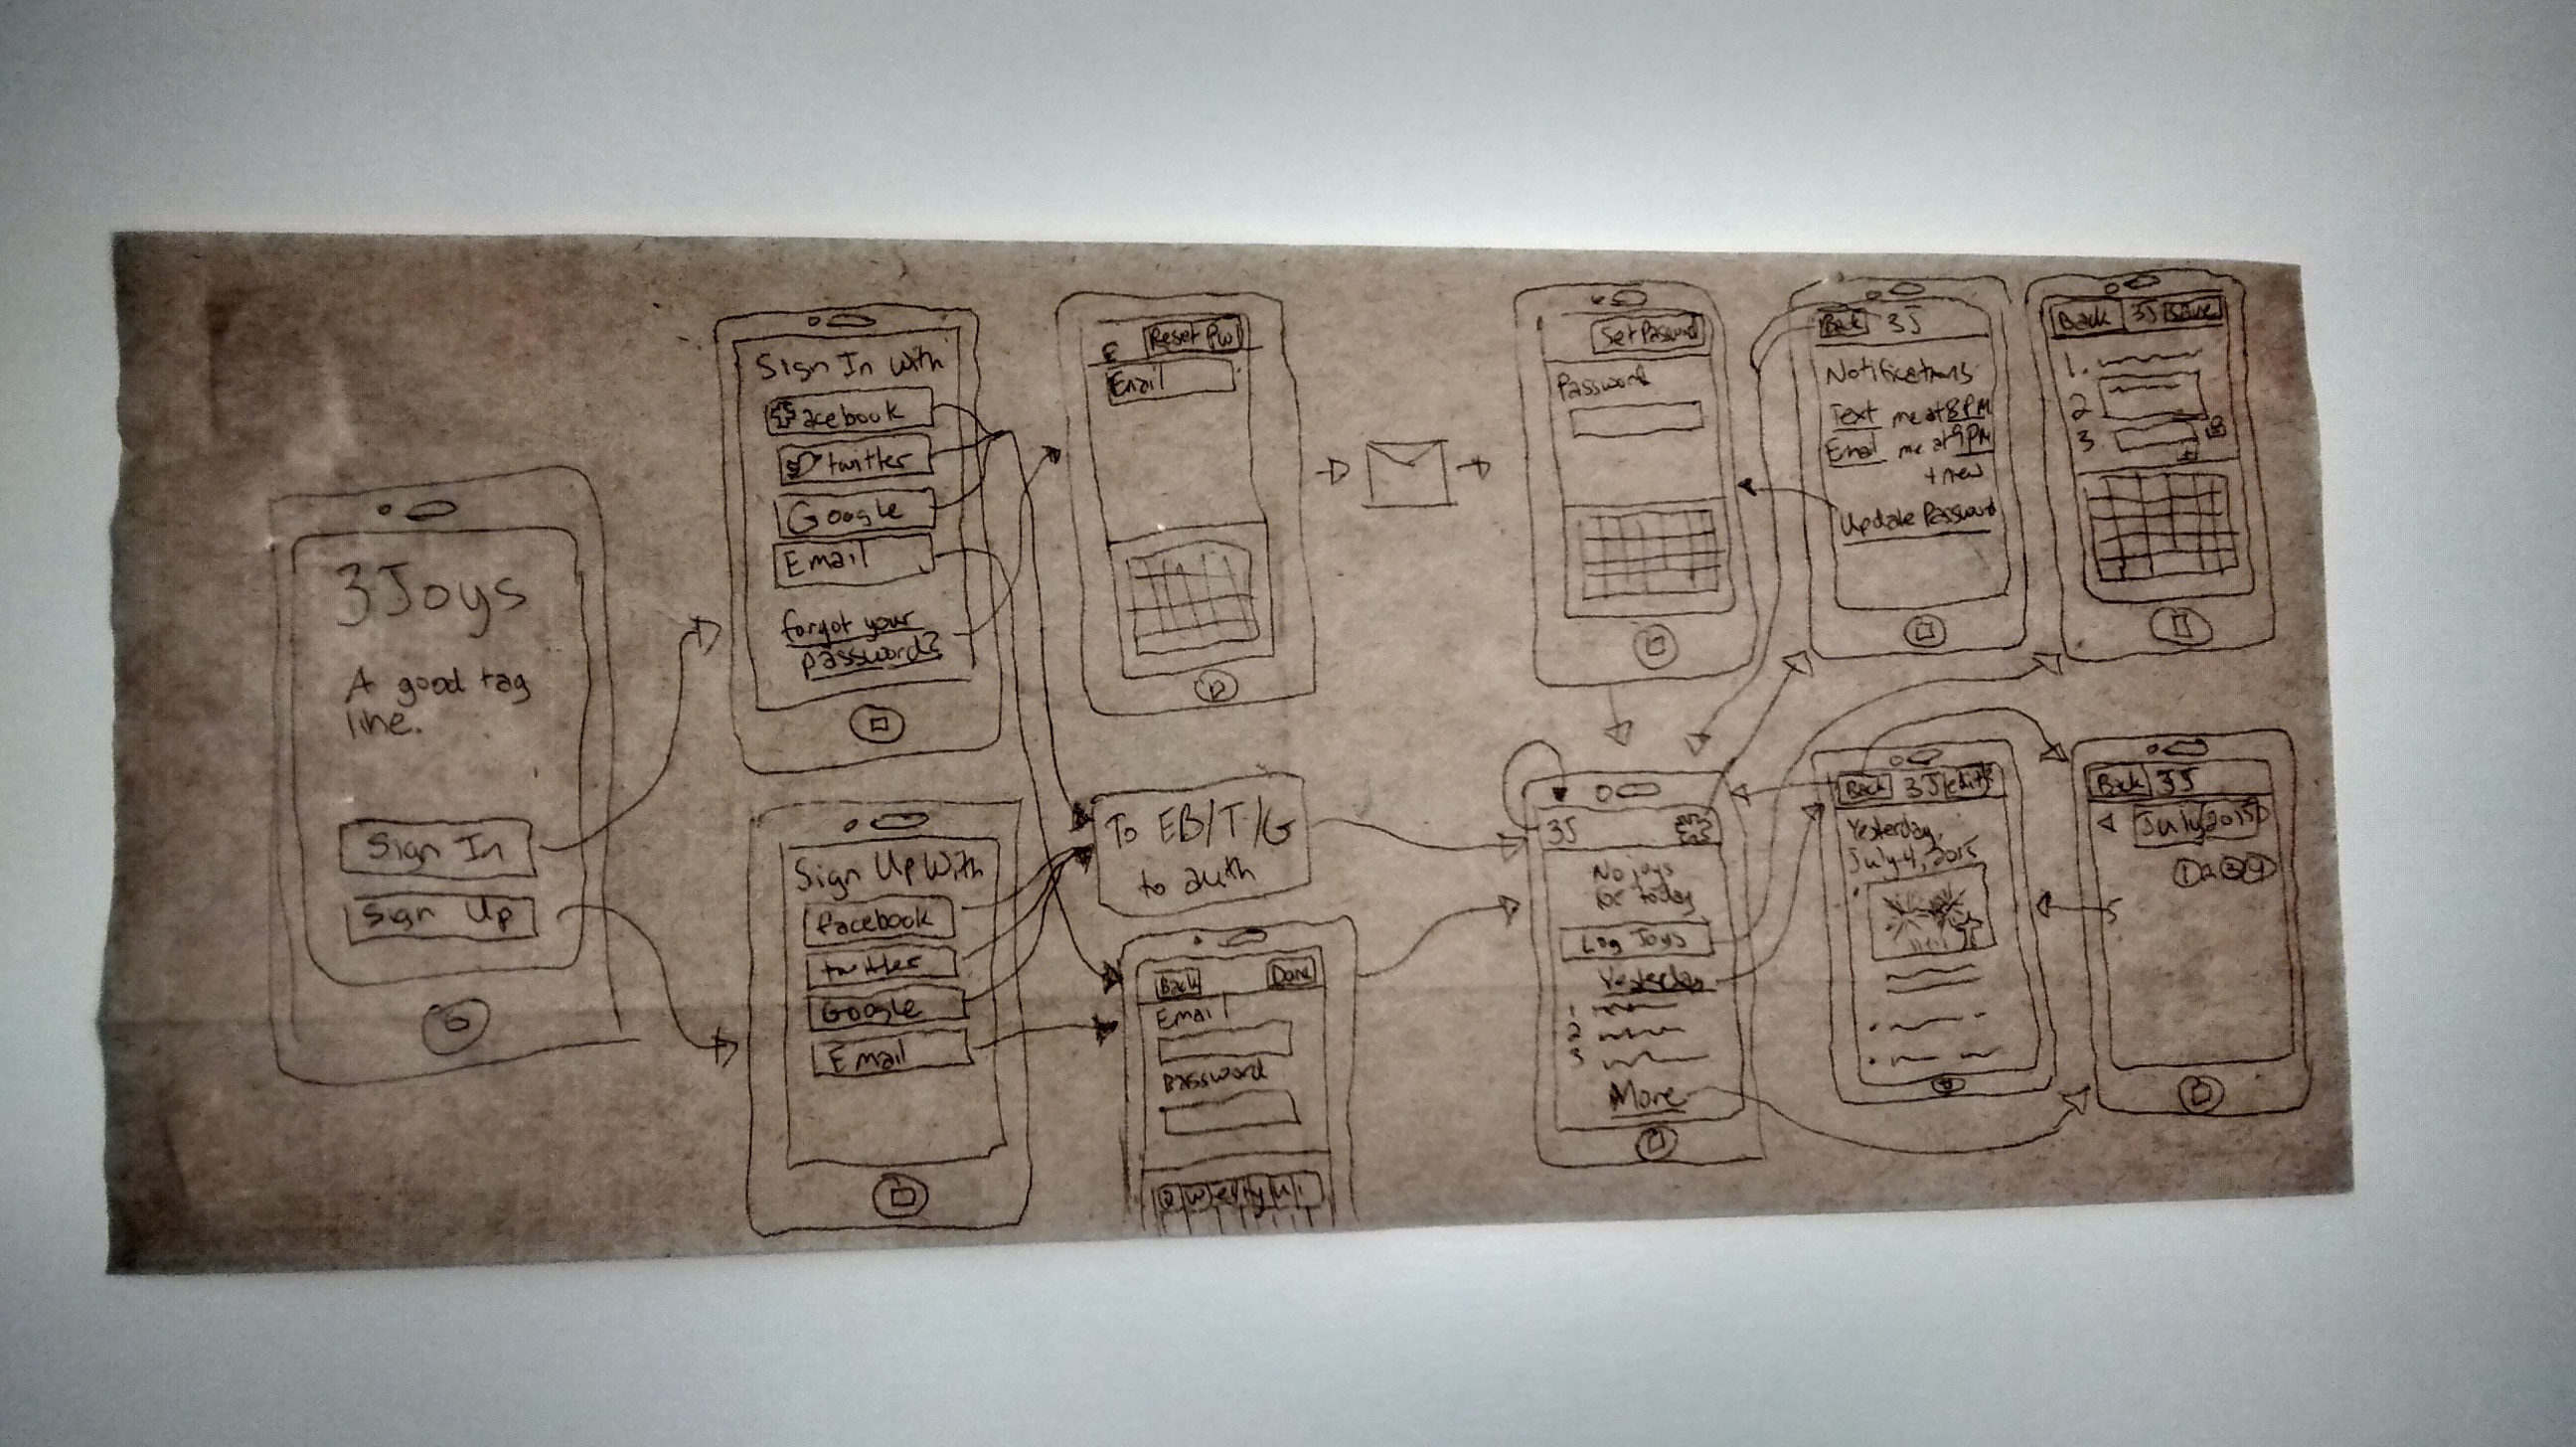 3Joys
A good tag
line.
Sign In
Sign Up
Sign In With
facebook
twitter
Google
Email
forgot your
password?
Sign Up With
facebook
twitter
Google
Email
Reset PW
Email
To FB/T/G
to auth
Back Done
Email
Password
Q W e r t y u i
Set Password
Password
Back 3J
Notifications
Text me at 8PM
Email me at 9PM
+ new
Update Password
Back 3J Save
1.
2
3
3J
No joys
for today
Log Joys
Yesterday
1
2
3
More
Back 3J edit
Yesterday,
July 4, 2015
Back 3J
July 2015
1 2 3 4
5